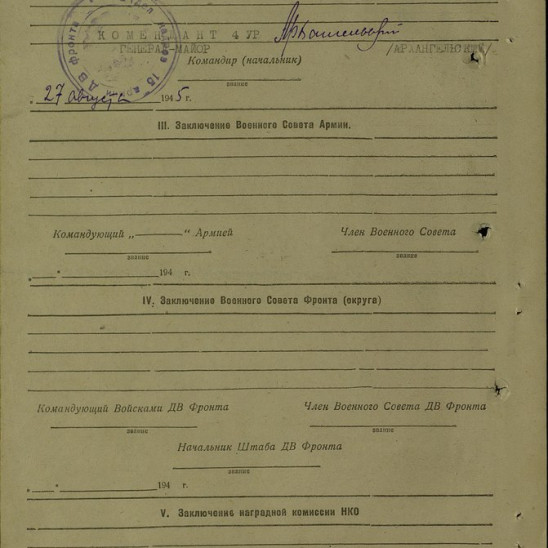 КОМЕНДАНТ 4 УР
ГЕНЕРАЛ-МАЙОР /АРХАНГЕЛЬСКИЙ/
Командир (начальник)
звание
27 августа 1945 г.
III. Заключение Военного Совета Армии.
Командующий „ “ Армией Член Военного Совета
звание звание
„ “ 194 г.
IV. Заключение Военного Совета Фронта (округа)
Командующий Войсками ДВ Фронта Член Военного Совета ДВ Фронта
звание звание
Начальник Штаба ДВ Фронта
звание
„ “ 194 г.
V. Заключение наградной комиссии НКО